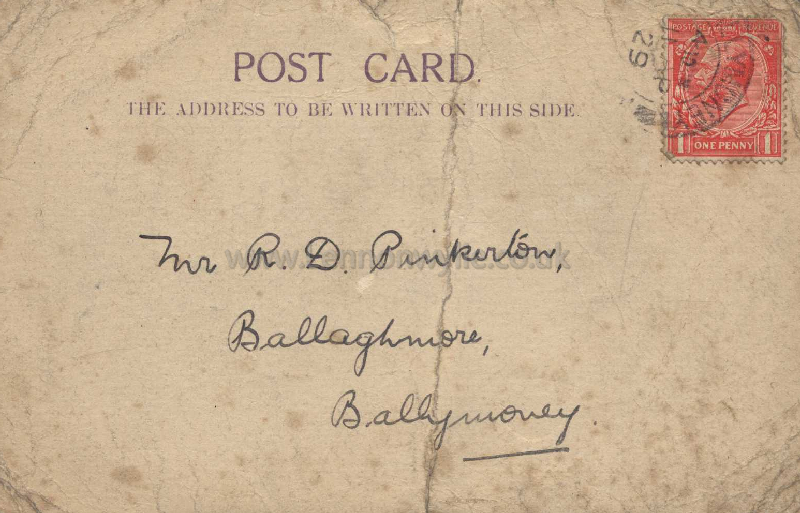 POST CARD.
THE ADDRESS TO BE WRITTEN ON THIS SIDE.
POSTAGE REVENUE
ONE PENNY
1 1
29
Mr R. D. Pinkerton,
Ballaghmore,
Ballymoney